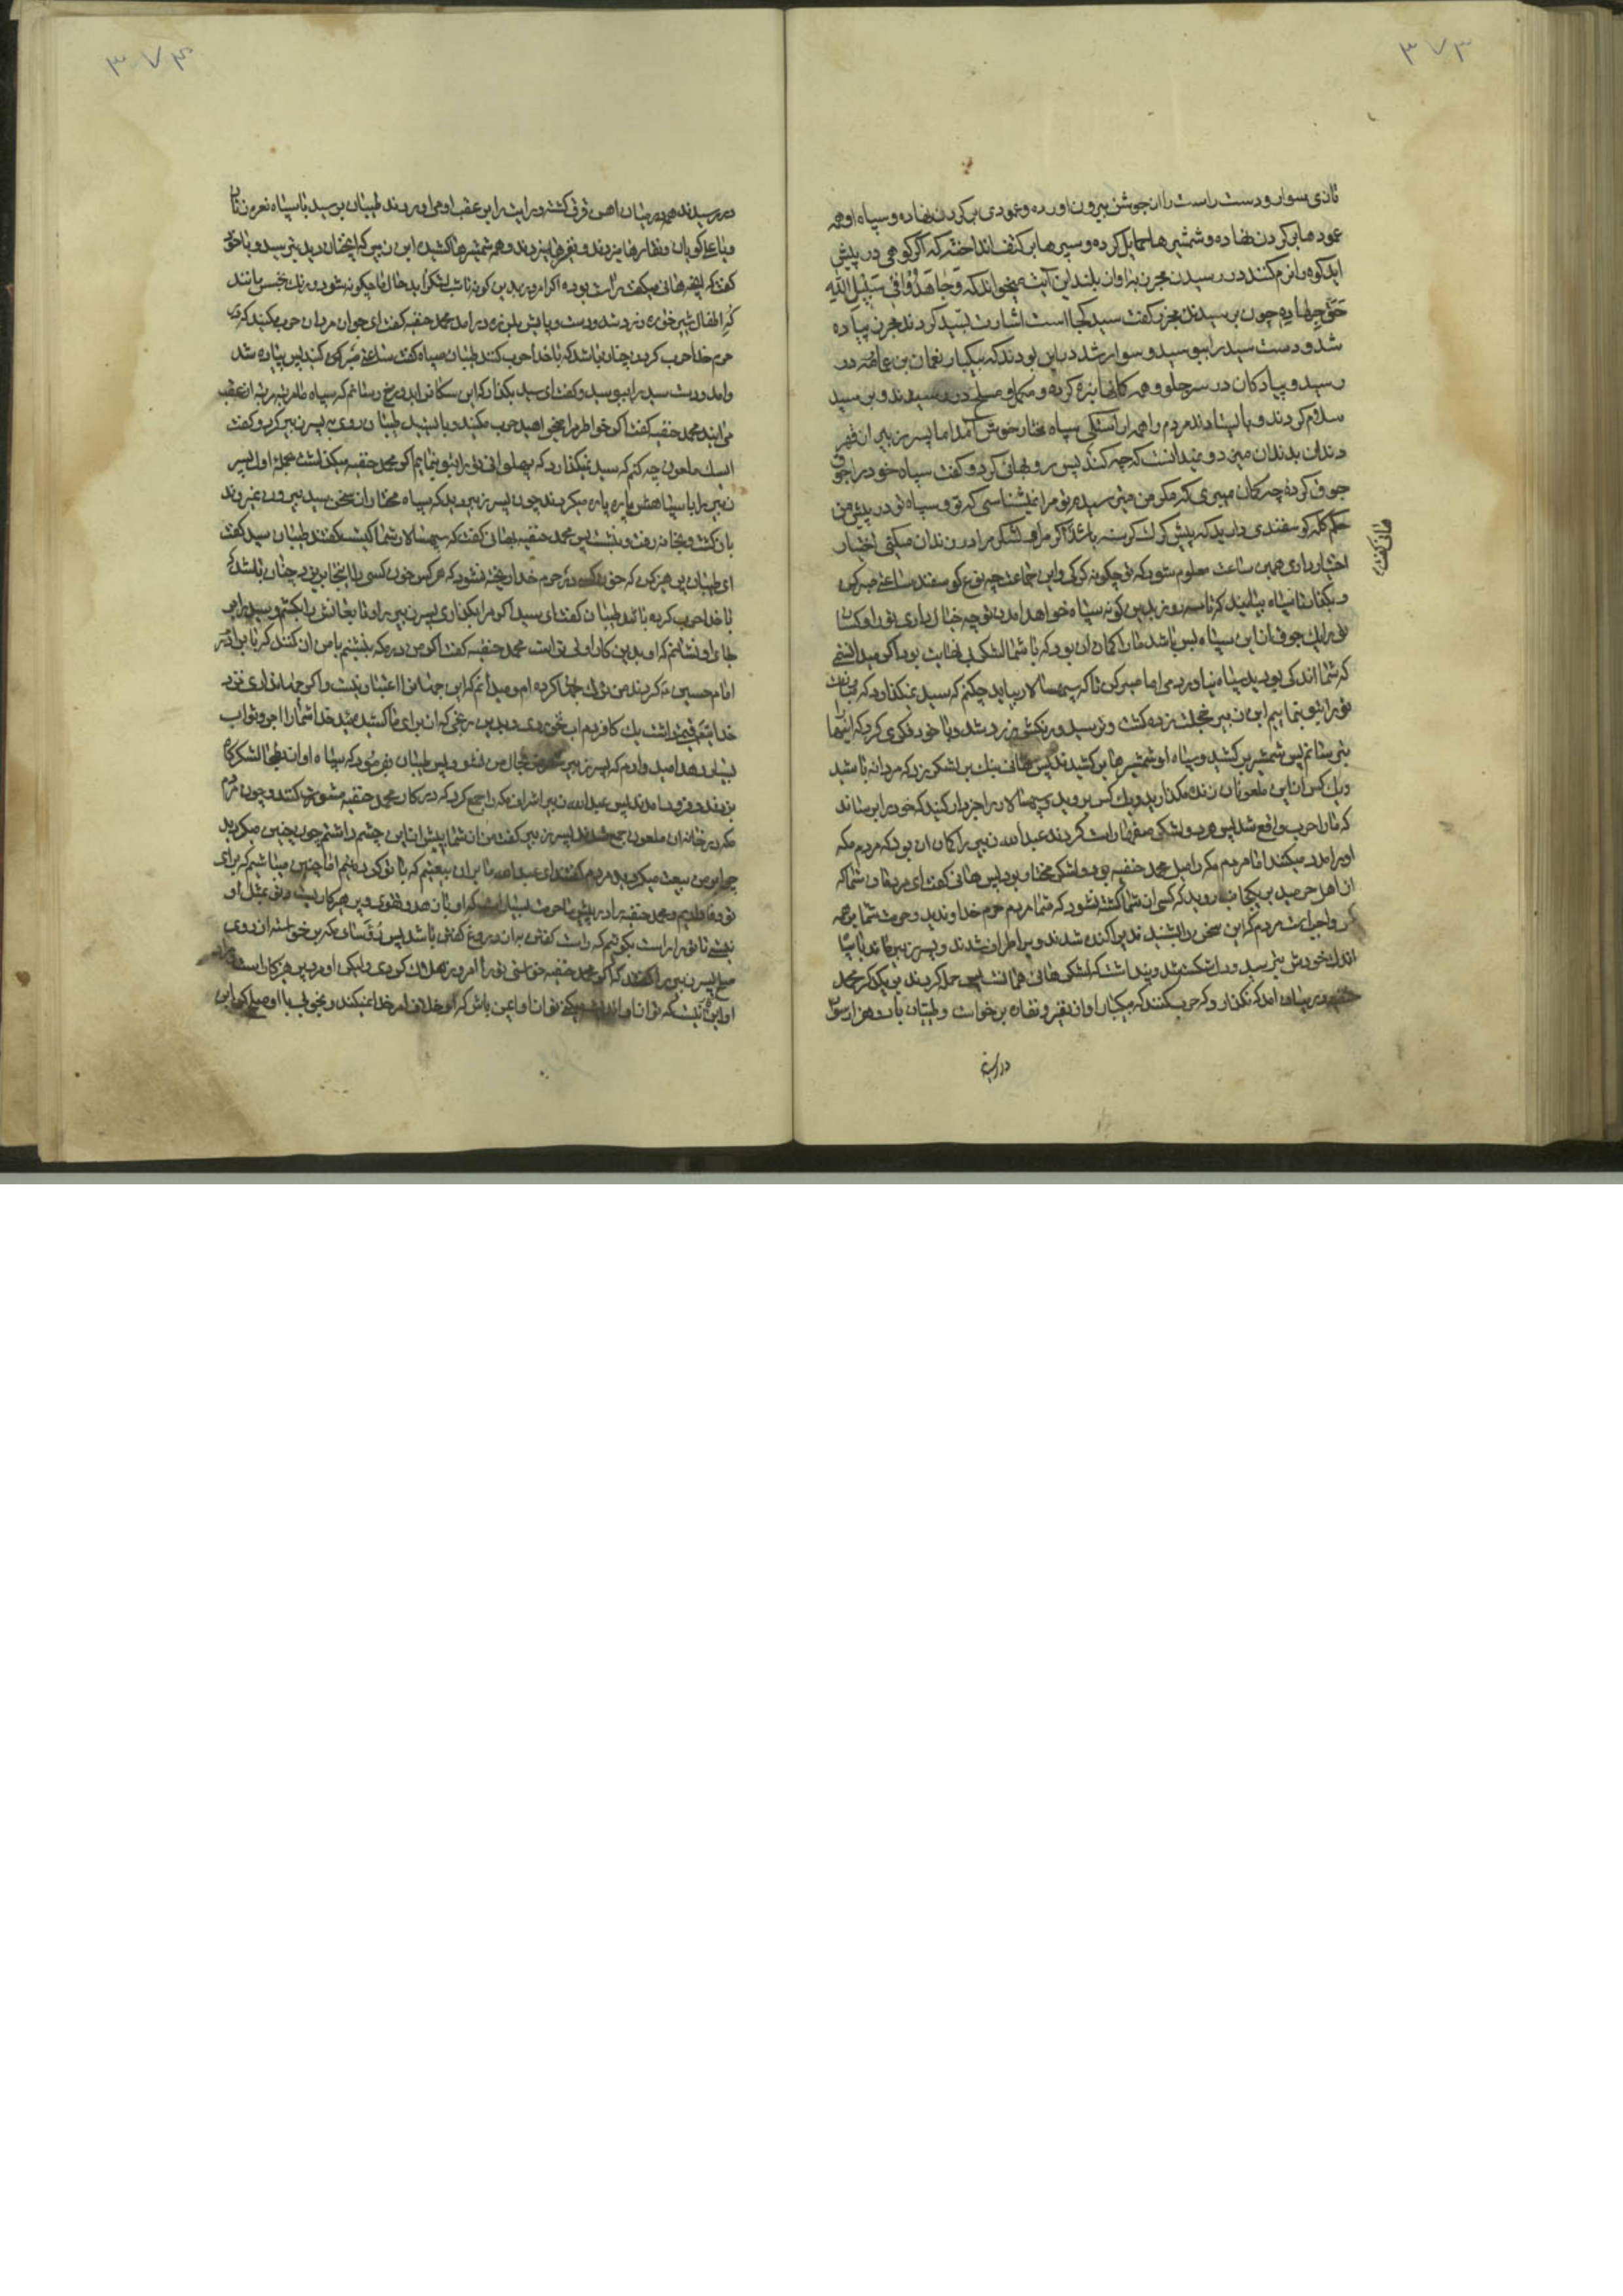 ۳۷۳
تازی سوار و دست راست را از جوشن بیرون اورده و عمودی بر کردن نهاده و سپاه او همه
عمودها بر کردن نهاده و شمشیرها حمایل کرده و سپرها بر کتف انداخته که اکر کوهی در پیش
اید کوه را نرم کنند در رسیدن بمجرن باواز بلند این آیت میخواند که وَجٰاهَدُوا فی سَبیلِ اللهِ
حَقَّ جِهادِهِ چون برسیدند مجرن کفت سید کجا است اشارت بسید کردند مجرن پیاده
شد و دست سید را ببوسید و سوار شد در این بودند که بیکبار نعمان بن در
رسید و پیادکان در سر جلو و همه کمانها بزه کرده و مکمل و مسلح در رسیدند و بر سید
سلام کردند و بایستادند مردم را همه از سپاه مختار خوش آمد اما پسر زبیر از قهر
دندان بدندان میزد و نمیدانست که چه کند پس رو بهانی کرد و کفت سپاه خود را جوق
جوق کرده چه کمان میبری که مکر من میترسم تو مرا نمیشناسی که تو و سپاه تو در پیش من
حکم کله کوسفندی دارید که پیش کرک کرسنه باشد اکر مرا و لشکر مرا در زندان میکنی اختیار
هانی کفت
اختیار داری همین ساعت معلوم شود که تو چکونه کرکی و این جماعت چه نوع کوسفند ساعتی صبر کن
و بکذار تا سپاه بیایند که تا سه روز بدین کونه سپاه خواهد امدن تو چه خیال داری تو را و کسان
تو را یک جوق از این سپاه بس باشد مارا کمان ان بود که با شما لشکر بی نهایت بود اکر میدانستم
که شما اندکی بودید سپاه نیاوردمی اما صبر کن تا که سپهسالار بیاید چکنم که سید نمیکذارد که
تو را بتو بنمایم ابن زبیر خجلت زده کشت و بترسید و رنکش زرد شد و با خود فکری کرد که اینها
بترسانم پس شمشیر بر کشید و سپاه او شمشیرها بر کشیدند پس هانی بانک بر لشکر زد که مردانه باشید
و یک کس از این ملعونان زنده مکذارید و یک کس برود و سپهسالار را خبردار کنید که خود را برساند
که مارا حرب واقع شد پس هر دو لشکر صفها راست کردند عبدالله زبیر را کمان ان بود که مردم مکه
او را مدد میکنند اما مردم مکه را میل محمد حنفیه بود و لشکر مختار بود پس هانی کفت ای مردمان شما که
از اهل حرمید بر یکجانب روید که کسی از شما کشته نشود که شما مردم حرم خداوندید و حرمت شما بر همه
کس واجب است مردم که این سخن را شنیدند پراکنده شدند و بر اطراف شدند و پسر زبیر ماند با سپاه
اندک خود پس بترسید و دل شکسته شد و پنداشت که لشکر هانی همانست پس حمله کردند بر یکدیکر محمد
حنفیه در میان امد که نکذارد که حرب کنند که بیکبار اواز نفیر و نقاره برخواست و طبیان با هزار سوار
در رسید
۳۷۴
در رسیدند همه در میان اهن غرق کشته و رایت را بر عقب او می اوردند طبیان برسید با سپاه نعره زنان
و یا علی کویان و نقاره ها میزدند و نفیرها میزدند و همه شمشیرها کشیده ابن زبیر که انچنان دید بترسید و با خود
کفت که اینچه هانی میکفت راست بوده اکر امروز بدین کونه تا شب لشکر اید حال ما چکونه شود و رنک بخس بمانند
که اطفال شیر خواره زرد شد و دست و پایش بلرزه درامد محمد حنفیه کفت ای جوان مردان حرب مکنید که در
حرم خدا حرب کردن چنان باشد که با خدا حرب کنند طبیان سپاه را کفت ساعتی صبر کنید پس پیاده شد
و امد و دست سید را ببوسید و کفت ای سید بکذار که این سکانرا بدوزخ رسانم که سپاه ما مرتبه مرتبه از عقب
می ایند محمد حنفیه کفت اکر خواطر مرا میخواهید حرب مکنید و بایستید طبیان روی به پسر زبیر کرد و کفت
ای سک ملعون چه کنم که سید نمیکذارد که پهلوانی تو را بتو بنمایم اکر محمد حنفیه میکذاشت بحمله اول پسر
زبیر را با سپاهش پاره پاره میکردند چون پسر زبیر دید که سپاه مختار از سخن سید بیرون نمیروند
باز کشت و بخانه رفت و بنشست پس محمد حنفیه بهانی کفت که سپهسالار شما کیست کفتند طبیان سید کفت
ای طبیان پرهیز کن که خون کس در حرم خدا ریخته نشود که هر کس خون کسی را اینجا بریزد چنان باشد که
با خدا حرب کرده باشد طبیان کفت ای سید اکر مرا بکذاری پسر زبیر را و تابعانش را بکشم و سید را بر
جای او نشانم که او بدین کار اولی تر است محمد حنفیه کفت اکر من در مکه بنشینم با من ان کنند که با برادرم
امام حسین ع کردند من ترک جهان کرده ام و میدانم که این جهانرا اعتبار نیست و اکر جهانداری نزد
خدایتعالی قیمتی داشت یک کافر دم اب نخوردی و بدین رنجی که از برای ما کشیدید خدا شمارا اجر و ثواب
بسیار دهد امیدوارم که پسر زبیر متعرض حال من نشود پس طبیان بفرمود که سپاه او از طبلها لشکرکاه
بزدند و فرود امدند پس عبدالله زبیر اشراف مکه را جمع کرد که در کار محمد حنفیه مشورت کنند و چون مردم
مکه در خانه ان ملعون جمع شدند پسر زبیر کفت من از شما پیش از این چشم داشتم چون چنین میکردید
چرا بر من بیعت میکردید مردم کفتند ای عبدالله ما بران بیعتیم که با تو کرده ایم اما چنین میباشیم که برای
تو دعا کوئیم و محمد حنفیه را در پیش ما حرمت بسیار است که او با زهد و تقوی و پرهیزکار است و تو مثل او
نیستی ما تو را راست بکوئیم که راست کفتن به از دروغ کفتن باشد پس رُؤسای مکه برخواسته از روی
صلح پسر زبیر را کفتند که اکر محمد حنفیه خواستی تو را امروز هلاک کردی ولیکن او مرد پرهیزکار است
او این نیست که تو از او اندیشه میکنی تو از او ایمن باش که او خلاف امر خدا نمیکند و بخوبی با او صلح کن این